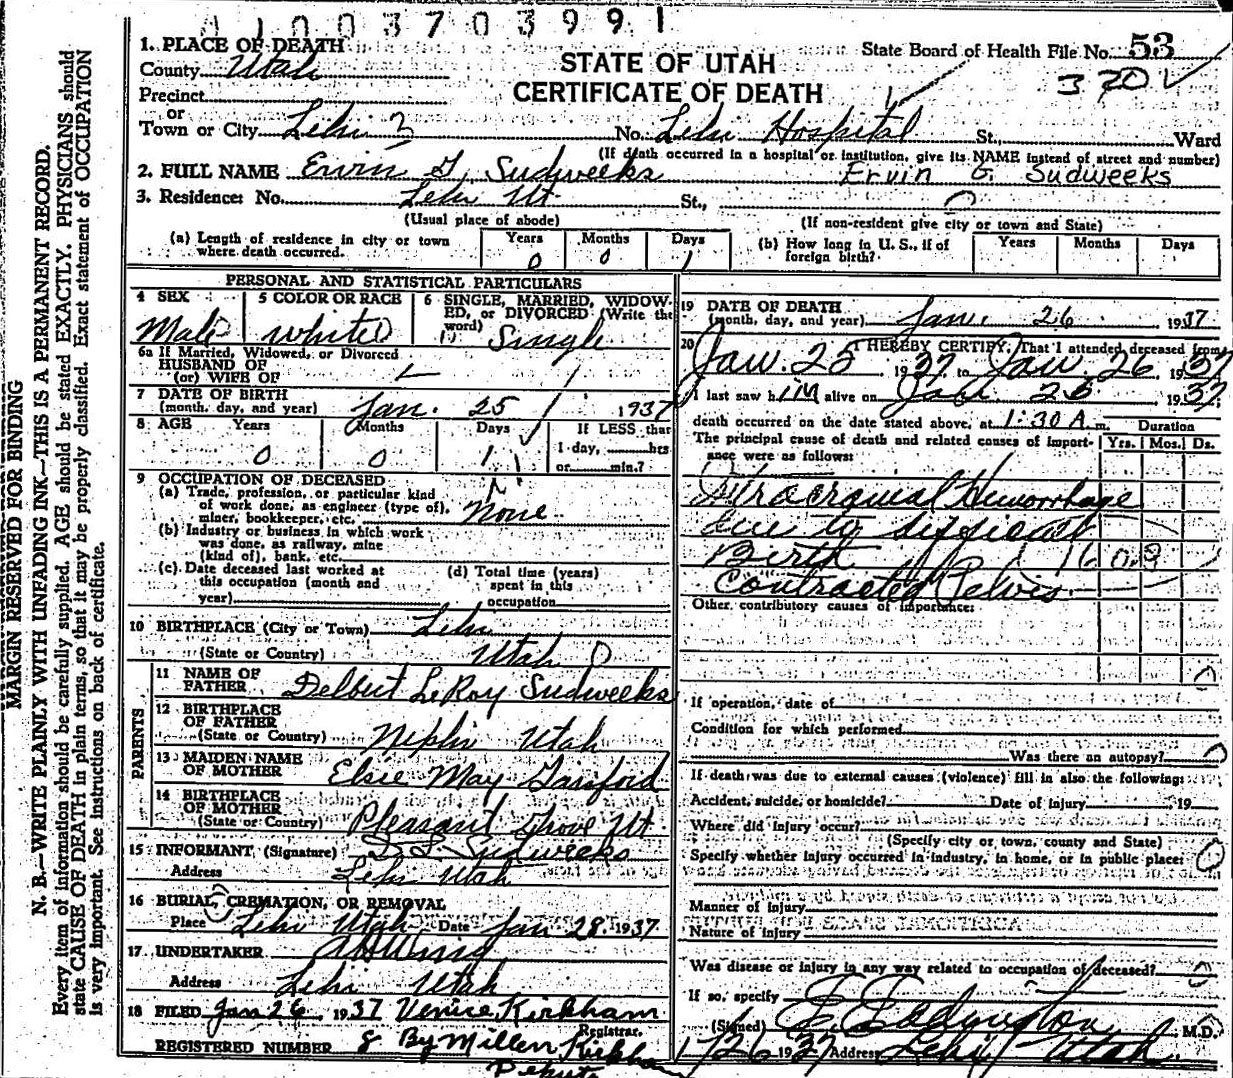 0 1 0 0 3 7 0 3 9 9 1
MARGIN RESERVED FOR BINDING
N. B.—WRITE PLAINLY WITH UNFADING INK—THIS IS A PERMANENT RECORD.
Every item of information should be carefully supplied. AGE should be stated EXACTLY. PHYSICIANS should
state CAUSE OF DEATH in plain terms, so that it may be properly classified. Exact statement of OCCUPATION
is very important. See instructions on back of certificate.
1. PLACE OF DEATH
County Utah
Precinct
or
Town or City Lehi 3
STATE OF UTAH
CERTIFICATE OF DEATH
State Board of Health File No. 53
370
No. Lehi Hospital St., Ward
(If death occurred in a hospital or institution, give its NAME instead of street and number)
2. FULL NAME Ervin G. Sudweeks Ervin G. Sudweeks
3. Residence: No. Lehi Ut. St.,
(Usual place of abode) (If non-resident give city or town and State)
(a) Length of residence in city or town where death occurred. Years 0 Months 0 Days 1
(b) How long in U. S., if of foreign birth? Years Months Days
PERSONAL AND STATISTICAL PARTICULARS
4 SEX Male
5 COLOR OR RACE white
6 SINGLE, MARRIED, WIDOWED, or DIVORCED (Write the word) Single
6a If Married, Widowed, or Divorced
HUSBAND OF
(or) WIFE OF
7 DATE OF BIRTH
(month, day, and year) Jan. 25 1937
8 AGE Years 0 Months 0 Days 1 If LESS than
1 day, hrs
or min.?
9 OCCUPATION OF DECEASED
(a) Trade, profession, or particular kind
of work done, as engineer (type of),
miner, bookkeeper, etc. None
(b) Industry or business in which work
was done, as railway, mine
(kind of), bank, etc.
(c) Date deceased last worked at
this occupation (month and
year)
(d) Total time (years)
spent in this
occupation
10 BIRTHPLACE (City or Town) Lehi
(State or Country) Utah
PARENTS
11 NAME OF
FATHER Delbert LeRoy Sudweeks
12 BIRTHPLACE
OF FATHER
(State or Country) Nephi Utah
13 MAIDEN NAME
OF MOTHER Elsie May
14 BIRTHPLACE
OF MOTHER
(State or Country) Pleasant Grove Ut.
15 INFORMANT, (Signature) D. L. Sudweeks
Address Lehi Utah
16 BURIAL, CREMATION, OR REMOVAL
Place Lehi Utah Date Jan 28. 1937
17 UNDERTAKER
Address Lehi Utah
18 FILED Jan 26, 1937 Venice Kirkham
Registrar.
REGISTERED NUMBER 8 By Millen Kirkham
Deputy
19 DATE OF DEATH
(month, day, and year) Jan. 26 1937
20 I HEREBY CERTIFY, That I attended deceased from
Jan. 25, 1937 to Jan. 26, 1937
I last saw him alive on Jan. 25, 1937
death occurred on the date stated above, at 1:30 A. m. Duration
The principal cause of death and related causes of importance were as follows: Yrs. Mos. Ds.
Intracranial Hemorrhage
due to difficult
Birth 160a
Contracted Pelvis
Other contributory causes of importance:
If operation, date of
Condition for which performed
Was there an autopsy?
If death was due to external causes (violence) fill in also the following:
Accident, suicide, or homicide? Date of injury 19
Where did injury occur?
(Specify city or town, county and State)
Specify whether injury occurred in industry, in home, or in public place:
Manner of injury
Nature of injury
Was disease or injury in any way related to occupation of deceased?
If so, specify
(Signed) E. Eddington M.D.
1/26 1937 Address Lehi Utah